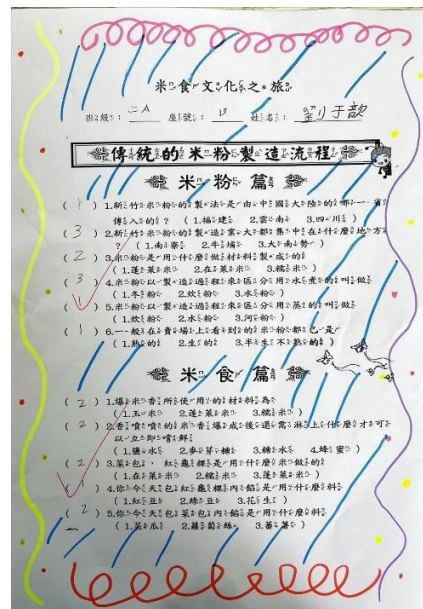 米食文化之旅
班級： 二A 座號： 13 姓名： 劉于歆
傳統的米粉製造流程
米粉篇
( 1 ) 1.新竹米粉的製法是由中國大陸的哪一省
傳入的？ ( 1.福建 2.雲南 3.四川 )
( 3 ) 2.新竹米粉的製造業大都集中在什麼地方
？ ( 1.南寮 2.牛埔 3.大南勢 )
( 2 ) 3.米粉是用什麼做材料製成的
( 1.蓬萊米 2.在萊米 3.糯米 )
( 3 ) 4.米粉以製造過程來區分用水煮的叫做
( 1.冬粉 2.炊粉 3.水粉 )
( 1 ) 5.米粉以製造過程來區分用蒸的叫做
( 1.炊粉 2.水粉 3.河粉 )
( 1 ) 6.一般在賣場上看到的米粉都已是
( 1.熟的 2.生的 3.半生不熟的 )
米食篇
( 2 ) 1.爆米香所使用的材料為
( 1.玉米 2.蓬萊米 3.糯米 )
( 2 ) 2.香噴噴的米香爆成後還需淋上什麼才可
以立即嚐鮮
( 1.鹽水 2.麥芽糖 3.糖水 4.蜂蜜 )
( 2 ) 3.菜包，紅龜粿是用什麼米做的
( 1.在萊米 2.糯米 3.蓬萊米 )
( 1 ) 4.你今天包紅龜粿內餡是用什麼料
( 1.紅豆 2.綠豆 3.花生 )
( 2 ) 5.你今天包菜包內餡是用什麼料
( 1.菜瓜 2.蘿蔔絲 3.蕃薯 )